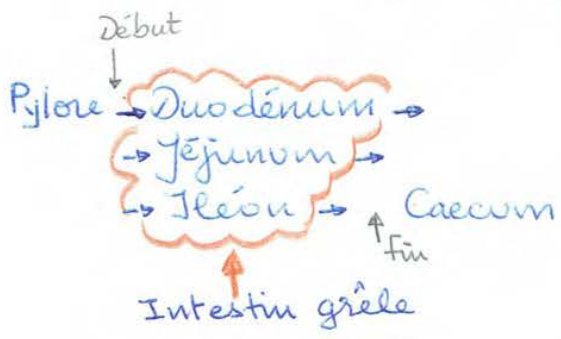 Début
Pylore → Duodénum →
→ Jéjunum →
→ Iléon → Caecum
fin
Intestin grêle